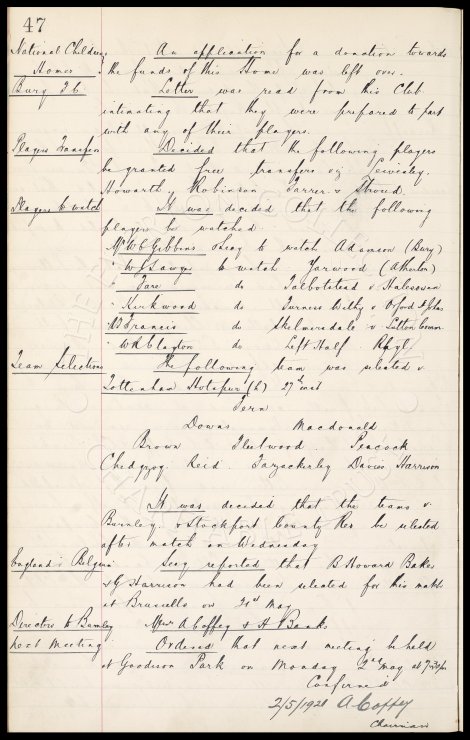 47
National Childrens An application for a donation towards
Homes the funds of this Home was left over.
Bury F.C. Letter was read from this Club
intimating that they were prepared to part
with any of their players.
Players Transfers Decided that the following players
be granted free transfers vz Lewisley.
Howarth, Robinson Farrer & Stroud.
Players to watch It was decided that the following
players be watched.
Mr W.C. Gibbins & Secy to watch Adamson (Bury)
" W J Sawyer to watch Yarwood (Atherton)
" Fare do Tarbotstead v Halesowen
" Kirkwood do Furness Withy v
" Francis do Skelmersdale v Sutton Comm.
" W R Clayton do Left Half Rhyl.
Team Selections The following team was selected v
Tottenham Hotspur (h) 27th inst
Fern
Downs Macdonald
Brown Fleetwood Peacock
Chedgzoy Reid Fazackerley Davies Harrison
It was decided that the teams v
Burnley & Stockport County Res be selected
after match on Wednesday
England v Belgium Secy reported that B Howard Baker
& G Harrison had been selected for this match
at Brussells on 21st May
Directors to Burnley Messrs A Coffey & A Banks
Next Meeting Ordered that next meeting be held
at Goodison Park on Monday 2nd May at 7-30pm
Confirmed
2/5/1921 A Coffey
Chairman